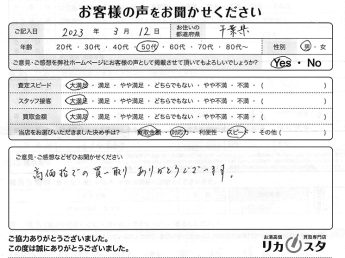 お客様の声をお聞かせください
ご記入日 2023 年 3 月 12 日 お住いの都道府県 千葉県
年齢 20代 ・ 30代 ・ 40代 ・ 50代 ・ 60代 ・ 70代 ・ 80代～ 性別 男 ・ 女
ご意見・ご感想を弊社ホームページにお客様の声として掲載させて頂いてもよろしいでしょうか? Yes ・ No
査定スピード 大満足 ・ 満足 ・ やや満足 ・ どちらでもない ・ やや不満 ・ 不満 ・ ( )
スタッフ接客 大満足 ・ 満足 ・ やや満足 ・ どちらでもない ・ やや不満 ・ 不満 ・ ( )
買取金額 大満足 ・ 満足 ・ やや満足 ・ どちらでもない ・ やや不満 ・ 不満 ・ ( )
当店をお選びいただきました決め手は? 買取金額 ・ 対応力 ・ 利便性 ・ スピード ・ その他 ( )
ご意見・ご感想などぜひお聞かせください
高価格での買い取り ありがとうございます。
ご協力ありがとうございました。
この度は誠にありがとうございました。
お酒高価買取専門店
リカスタ